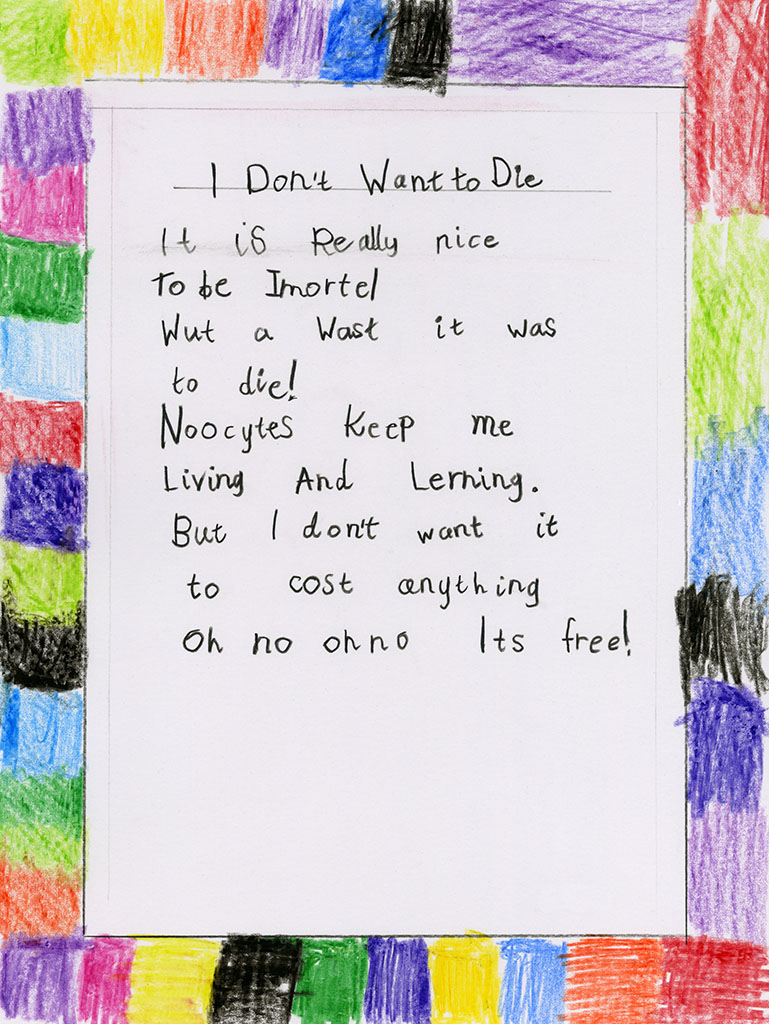 I Don't Want to Die
It is Really nice
To be Imortel
Wut a Wast it was
to die!
Noocytes Keep me
Living And Lerning.
But I don't want it
to cost anything
Oh no oh no Its free!